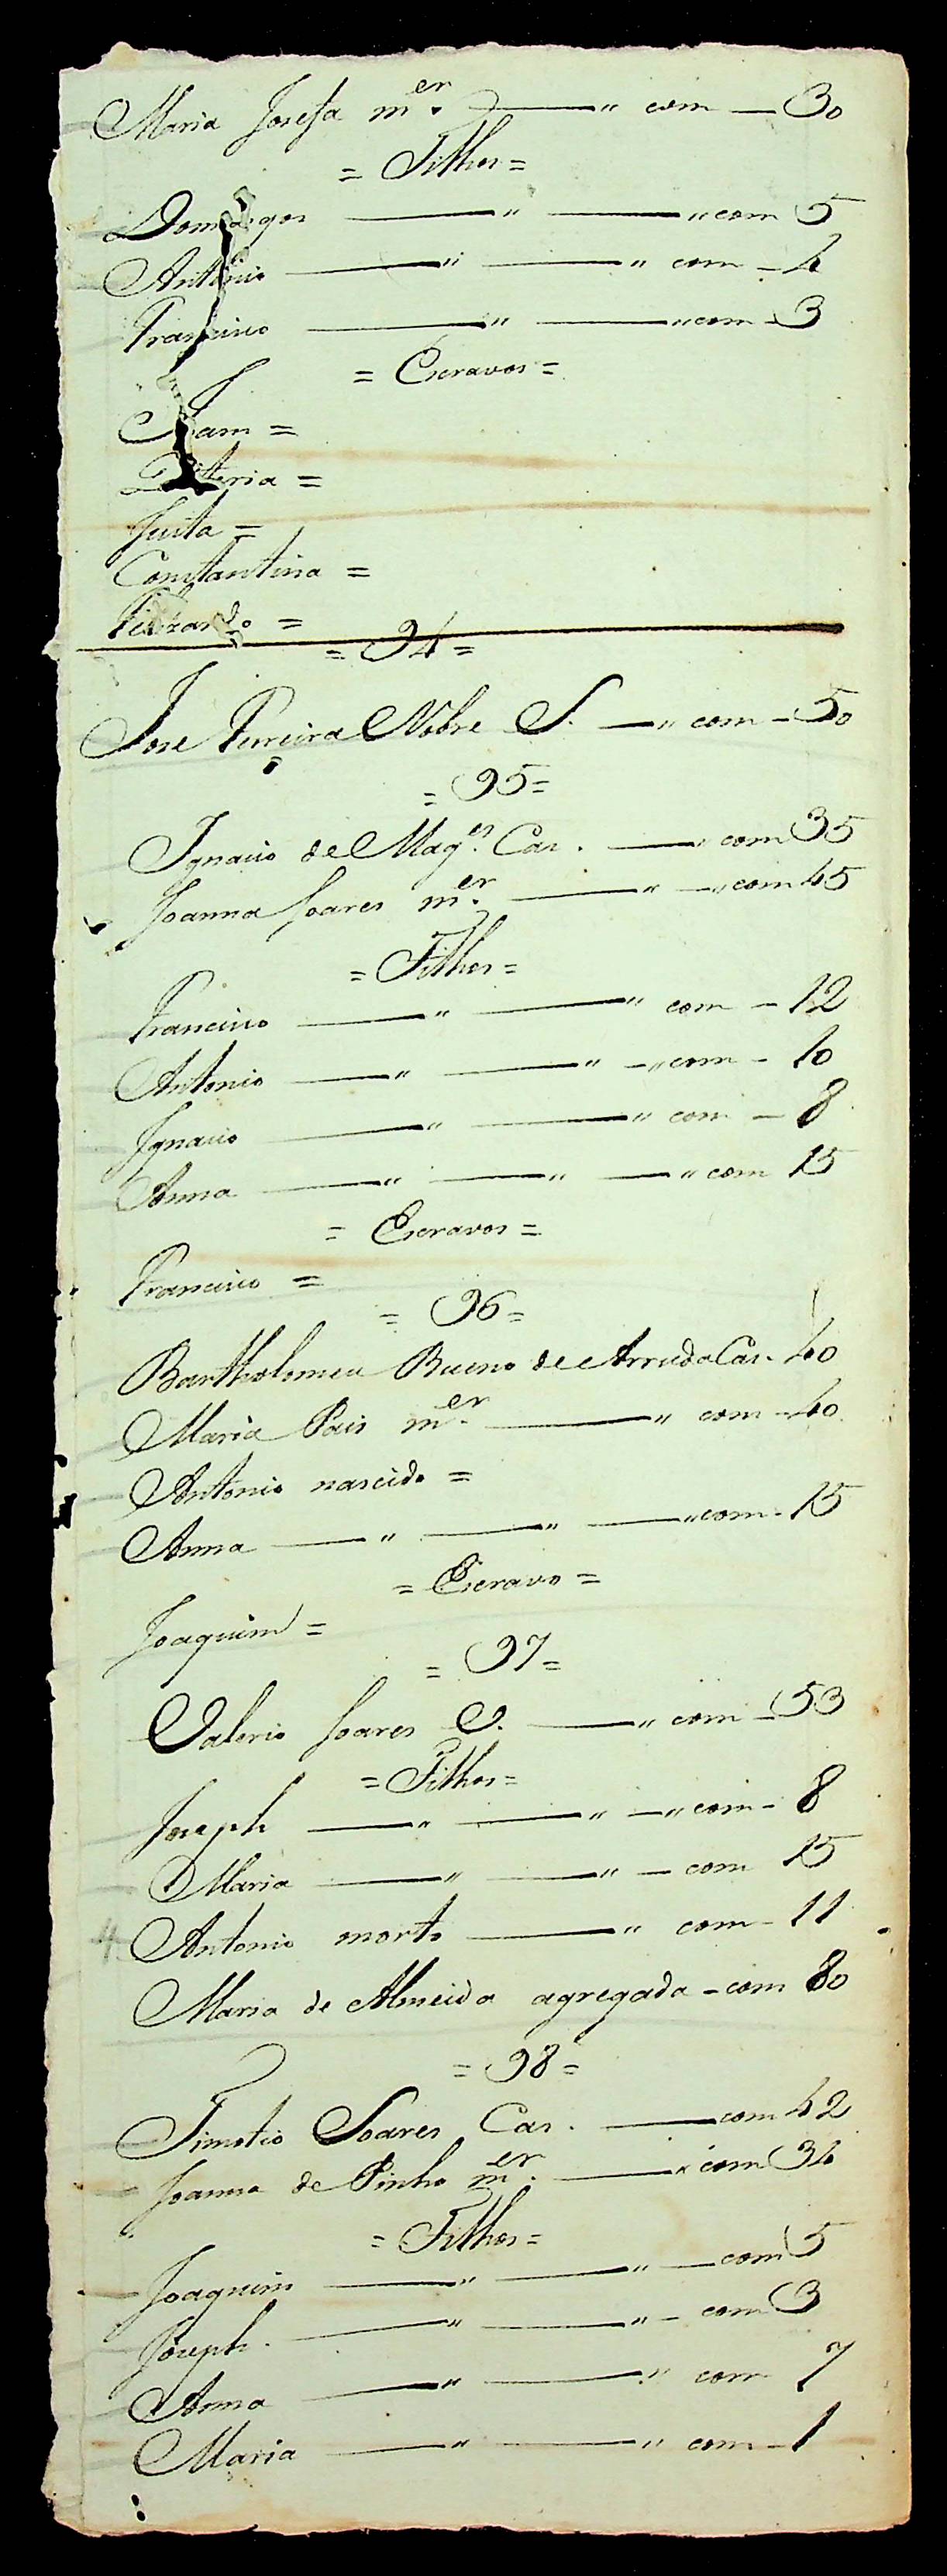 Maria Josefa m.er —" com — 30
= Filhos =
Domingos —" —" com 5
Antonio —" —" com — 4
Francisco —" —" com — 3
= Escravos =
Joam =
Quiteria =
Justa =
Constantina =
= 94 =
Jose Pereira Nobre S. —" com — 50
= 95 =
Ignacio de Mag.es Cas. —" com 35
Joanna Soares m.er —" —" com 45
= Filhos =
Francisco —" —" com — 12
Antonio —" —" —" com — 10
Ignacio —" —" com — 8
Anna —" —" —" com 15
= Escravos =
Francisco =
= 96 =
Bartholomeu Bueno de Arruda Cas. 40
Maria Pais m.er —" com — 40
Antonio nascido =
Anna —" —" —" com — 15
= Escravo =
Joaquim =
= 97 =
Valerio Soares V. —" com — 53
= Filhos =
Joseph —" —" —" com — 8
Maria —" —" — com 15
4 Antonio morto —" com — 11
Maria de Almeida agregada — com 80
= 98 =
Timotio Soares Cas. — com 42
Joanna de Pinho m.er —" com 34
= Filhos =
Joaquim —" —" — com 5
Joseph. —" —" — com 3
Anna —" —" com 7
Maria —" —" com — 1